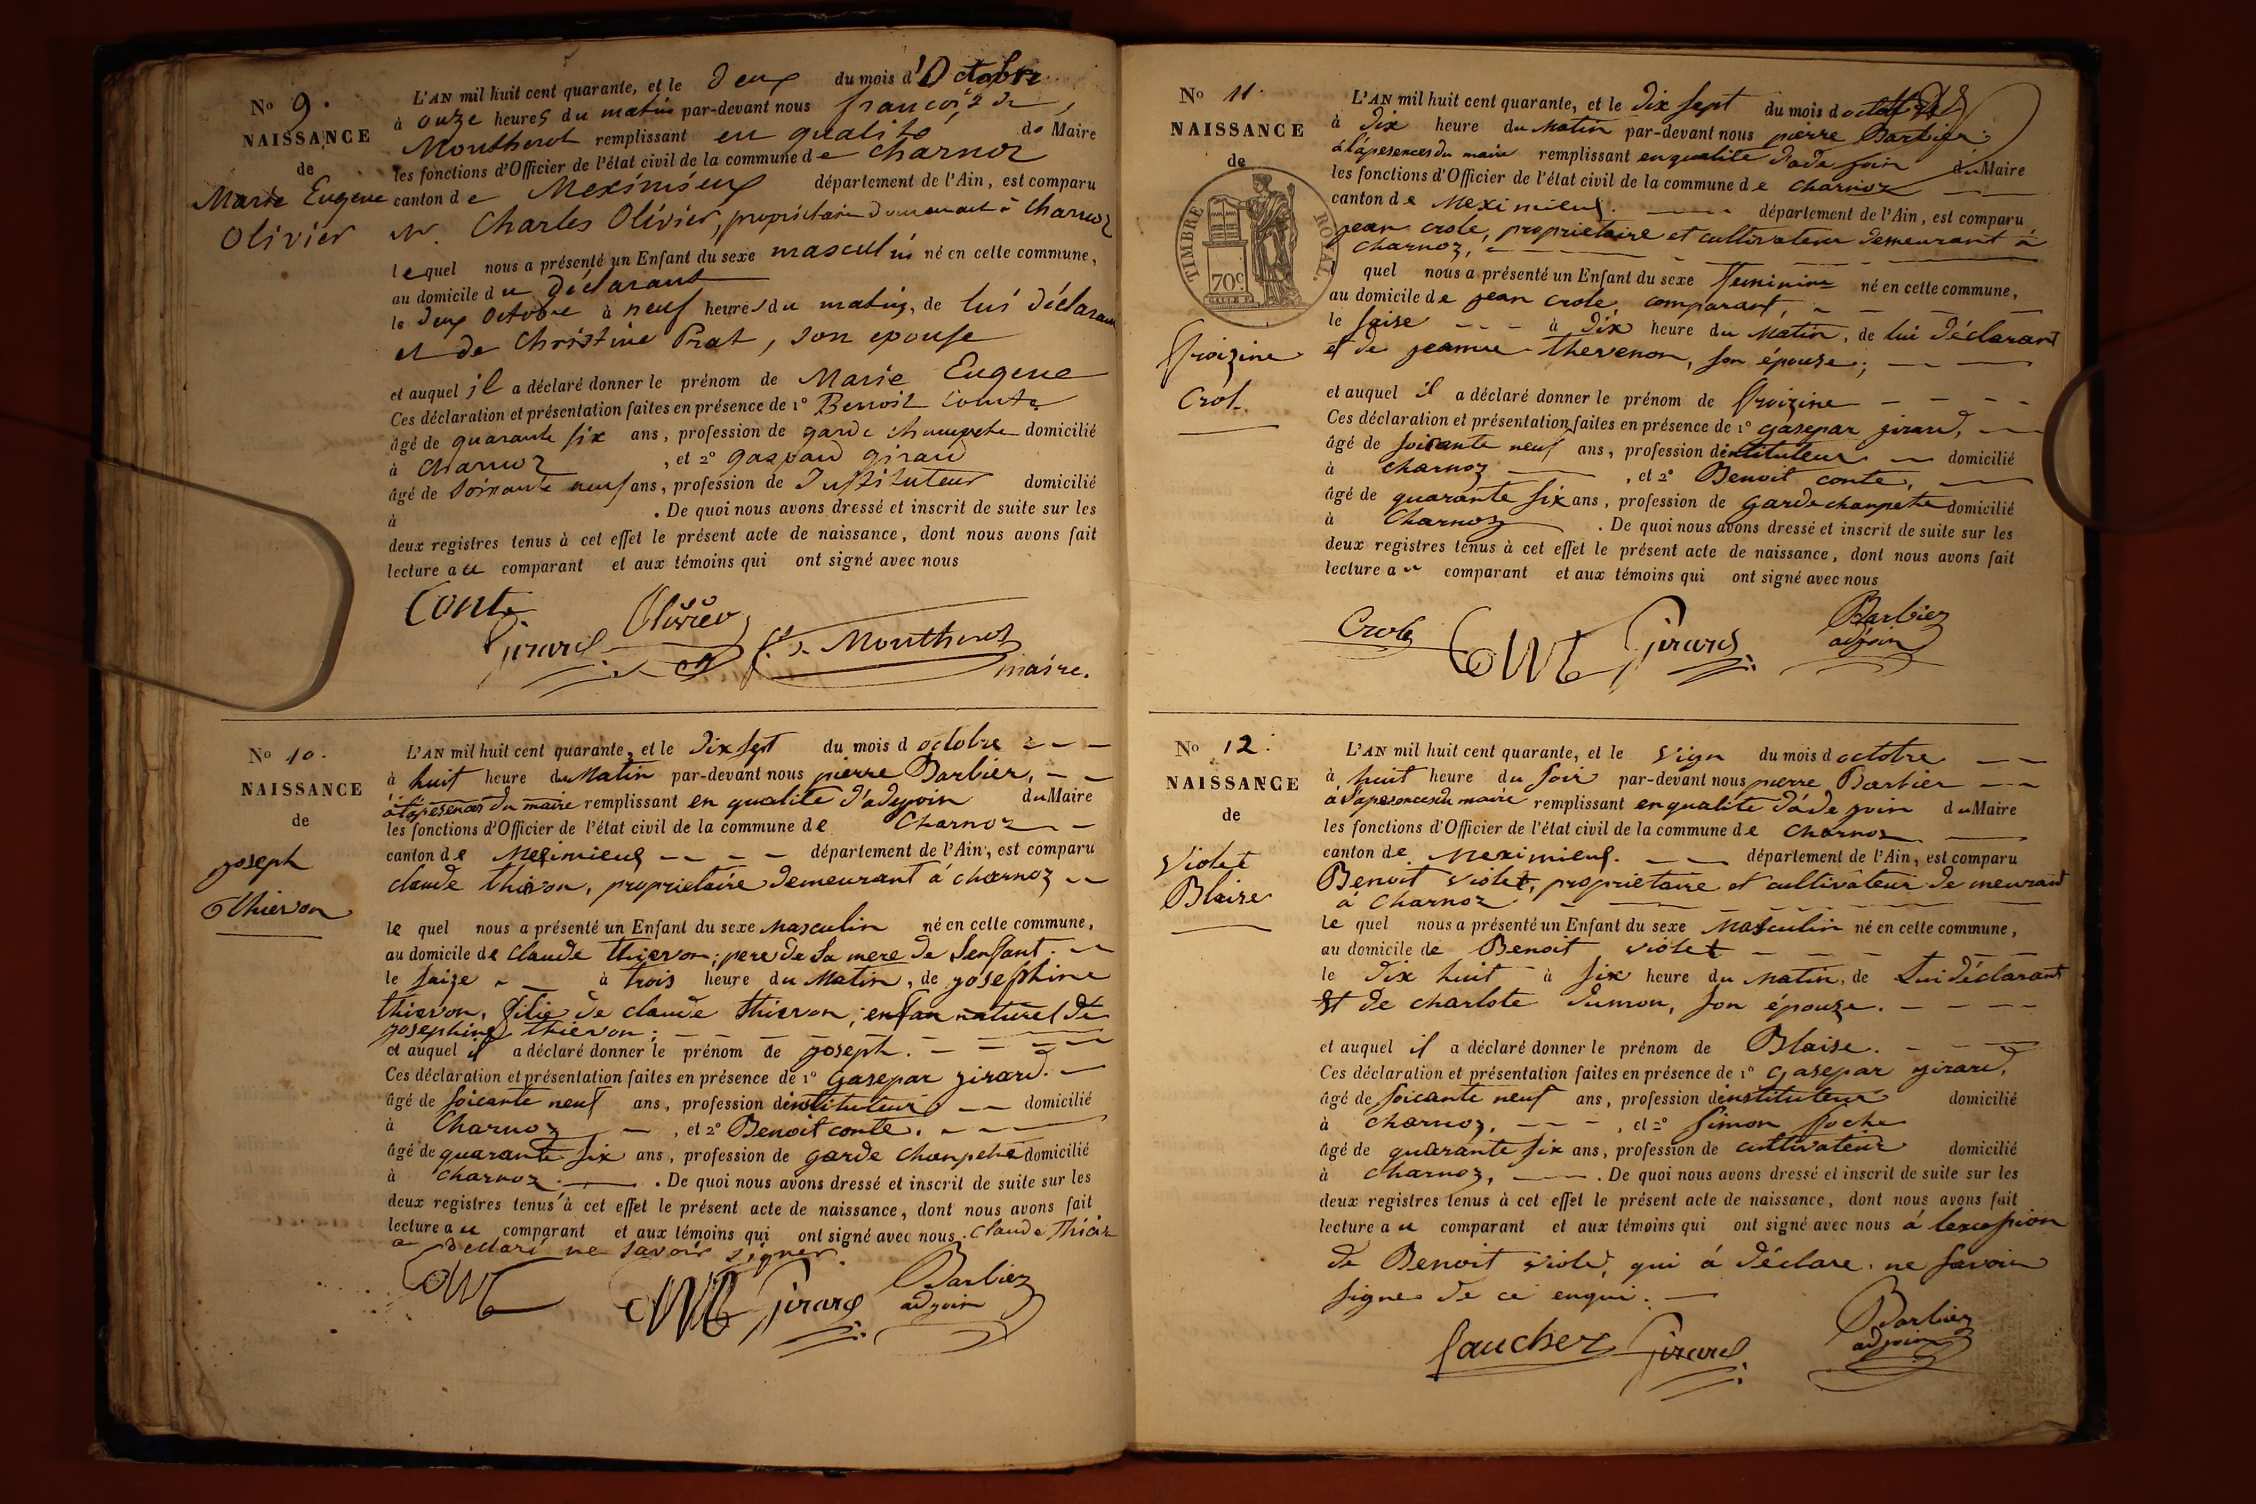 No 9.
NAISSANCE
de
Marie Eugene
Olivier
L'AN mil huit cent quarante, et le deux du mois d'Octobre
à onze heures du matin par-devant nous françois de
Montherot remplissant en qualité de Maire
les fonctions d'Officier de l'état civil de la commune de Charnoz
canton de Meximieux département de l'Ain, est comparu
Mr. Charles Olivier, propriétaire demeurant à Charnoz
lequel nous a présenté un Enfant du sexe masculin né en cette commune,
au domicile du déclarant
le deux Octobre à neuf heures du matin, de lui déclarant
et de Christine Prat, son epouse
et auquel il a déclaré donner le prénom de Marie Eugene
Ces déclaration et présentation faites en présence de 1° Benoit Conte
âgé de quarante six ans, profession de garde champetre domicilié
à Charnoz, et 2° gaspard girard
âgé de soixante neuf ans, profession de Instituteur domicilié
à . De quoi nous avons dressé et inscrit de suite sur les
deux registres tenus à cet effet le présent acte de naissance, dont nous avons fait
lecture au comparant et aux témoins qui ont signé avec nous
Conte
Girard Olivier Montherot
maire.
No 10.
NAISSANCE
de
joseph
thievon
L'AN mil huit cent quarante, et le dix sept du mois d octobre
à huit heure du Matin par-devant nous pierre Barbier,
à l'apesences du maire remplissant en qualite d'adejoin du Maire
les fonctions d'Officier de l'état civil de la commune de Charnoz
canton de Meximieux département de l'Ain, est comparu
claude thievon, proprietaire demeurant á charnoz
le quel nous a présenté un Enfant du sexe Masculin né en cette commune,
au domicile de claude thievon, pere de la mere de Lenfant.
le saize à trois heure du Matin, de josephine
thievon, filie de claude thievon, enfan naturel de
josephine thievon;
et auquel il a déclaré donner le prénom de joseph.
Ces déclaration et présentation faites en présence de 1° Gasepar girard.
âgé de soicante neuf ans, profession dinstituteur domicilié
à Charnoz, et 2° Benoit conte.
âgé de quarante six ans, profession de garde chanpetre domicilié
à charnoz. De quoi nous avons dressé et inscrit de suite sur les
deux registres tenus à cet effet le présent acte de naissance, dont nous avons fait
lecture au comparant et aux témoins qui ont signé avec nous. Claude
a declaré ne savoir signer
Conte Girard Barbier
adjoin
No 11.
NAISSANCE
de
TIMBRE ROYAL.
70c.
froizine
Crot.
L'AN mil huit cent quarante, et le dix sept du mois d
à dix heure du Matin par-devant nous pierre Barbier
à l'apesences du maire remplissant en qualite dade join du Maire
les fonctions d'Officier de l'état civil de la commune de Charnoz
canton de Meximieux. département de l'Ain, est comparu
jean crote, proprietaire et cultivateur demeurant à
charnoz,
quel nous a présenté un Enfant du sexe feminine né en cette commune,
au domicile de jean crote, comparant,
le saise à dix heure du Matin, de lui déclarant
et de jeanne thevenon, son épouze;
et auquel il a déclaré donner le prénom de froizine
Ces déclaration et présentation faites en présence de 1° gasepar girard,
âgé de soicante neuf ans, profession dintituteur domicilié
à charnoz, et 2° Benoit conte,
âgé de quarante six ans, profession de garde chanpetre domicilié
à Charnoz. De quoi nous avons dressé et inscrit de suite sur les
deux registres tenus à cet effet le présent acte de naissance, dont nous avons fait
lecture au comparant et aux témoins qui ont signé avec nous
Crote Conte Girard Barbier
adjoin
No 12.
NAISSANCE
de
Violet
Blaise
L'AN mil huit cent quarante, et le vign du mois d octobre
à huit heure du soir par-devant nous pierre Barbier
à l'apesences du maire remplissant en qualité dade join du Maire
les fonctions d'Officier de l'état civil de la commune de Charnoz
canton de Meximieux. département de l'Ain, est comparu
Benoit violet, proprietaire et cultivateur demeurant
a charnoz
le quel nous a présenté un Enfant du sexe Masculin né en cette commune,
au domicile de Benoit violet
le dix huit à six heure du Matin, de Lui déclarant
et de charlote dumon, son épouze.
et auquel il a déclaré donner le prénom de Blaise.
Ces déclaration et présentation faites en présence de 1° gasepar girard,
âgé de soicante neuf ans, profession dinstituteur domicilié
à charnoz, et 2° simon foche
âgé de quarante six ans, profession de cultivateur domicilié
à charnoz, . De quoi nous avons dressé et inscrit de suite sur les
deux registres tenus à cet effet le présent acte de naissance, dont nous avons fait
lecture au comparant et aux témoins qui ont signé avec nous á
de Benoit violet, qui á déclare ne savoir
signer de ce enqui.
fauchez Girard Barbier
adjoin